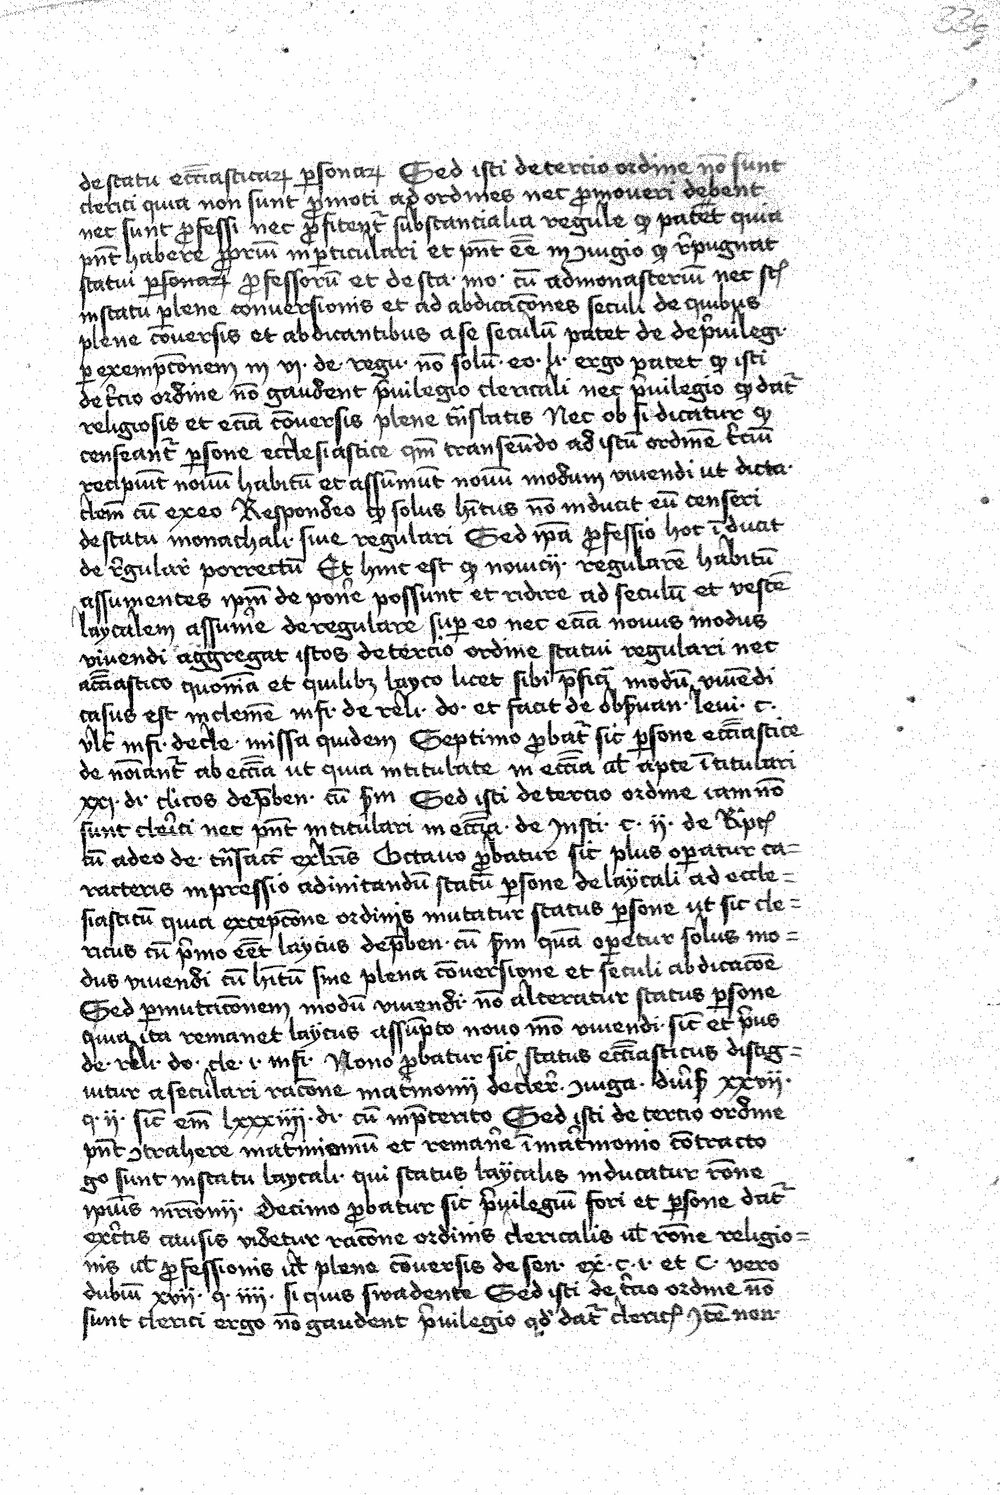 336
de statu ecc̄iasticaꝝ ꝑsonaꝝ Sed isti de tercio ordine nō sunt
clerici quia non sunt ꝓmoti ad ordines nec ꝓmoveri debent
nec sunt ꝓfessi nec ꝓfitent̄ substancialia regule ꝙ patet quia
pn̄t habere ꝓpriū in ꝑticulari et pn̄t eē̄ in ꝯiugio ꝙ r̄pugnat
statui ꝑsonaꝝ ꝓfessorū et de sta· mo· cū ad monasteriū nec
in statu plene conversionis et ad abdicacōnes seculi de quibus
plene cōversis et abdicantibus a se seculū patet de de pͥvilegi·
ꝑ exempcōnem in vi· de· regu· nō solū· eo· li· ergo patet ꝙ isti
de t̄cio ordine nō gaudent pͥvilegio clericali nec pͥvilegio ꝙ dat̄
religiosis et eciā cōversis plene tn̄slatis Nec ob si dicatur ꝙ
censeant̄ ꝑsone ecclesiastice qm̄ transeūdo ad istū ordinē t̄ciū
recipiūt novū habitū et assumūt novū modum vivendi ut dicta·
clem̄ cū ex eo Respondeo ꝙ solus hītus nō inducit eū censeri
de statu monachali· sive regulari Sed ipā ꝓfessio hoc īducit
de r̄gular̄ porrectū Et hinc est ꝙ novicij· regularē habitū
assumentes ipm̄ deponͤe possunt et ridire ad seculū et vestē
laycalem assumͤe de regulare suꝑ eo nec eciā novus modus
vivendi aggregat istos de tercio ordine statui regulari nec
acc̄iastico quoniā et quilibꝫ layco licet sibi p̄fic̄ modū vivēdi
casus est in clemē inf̄i· de reli· do· et facit de obs̄uan· levi· c·
ult̄ inf̄i· de cle· missa quidem Septimo ꝓbat̄ sic ꝑsone ecc̄iastice
de noīant̄ ab ecc̄ia ut quia intitulate in ecc̄ia ul̄ apte ītitulari
xxi· di· cl̄icos de p̄ben· cū p̄m Sed isti de tercio ordine iam nō
sunt cleͥci nec pn̄t intitulari in ecc̄ia· de insti· c· ii· de
cū adeo de· tn̄sacc̄ Octavo ꝓbatur sic plus oꝑatur ca=
racteris inpressio ad initandū statū ꝑsone de laÿcali ad eccle=
siasticū quia excepcōne ordinis mutatur status ꝑsone ut sic cle=
ricus cū pͥmo eē̄t laycus de p̄ben· cū p̄m quā oꝑetur solus mo=
dus vivendi cū hītū sine plena cōversione et seculi abdicacōe
Sed ꝑmutticōnem modū vivendi· nō alteratur status ꝑsone
quia ita remanet laycus assūpto novo mō vivendi· sic̄ et pͥus
de· reli· do· cle· i· inf̄i· Nono ꝓbatur sic status ecc̄iasticus distig=
uitur a seculari racōne matͥmonij de cler̄· ꝯiuga· xxvii·
q· ii· sic̄ em̄ lxxxiiii· di· cū in p̄terito Sed isti de tercio ordine
pn̄t ꝯtrahere matͥmiomū et remanͤe ī matͥmonio cōtracto
go sunt in statu laycali· qui status laÿcalis inducatur rōne
ipīus mͥionij· Decimo ꝓbatur sic pͥvilegiū fori et ꝑsone dat̄
exc̄tis causis videtur racōne ordinis clericalis ul̄ rōne religio=
nis ul̄ ꝓfessionis ul̄ plene cōversis de sen· ex· c· i· et C· vero
dubiū xvii· q· iiii· si quis swadente Sed isti de t̄cio ordine nō
sunt clerici ergo nō gaudent pͥvilegio qd̄ dat̄ Itē non·